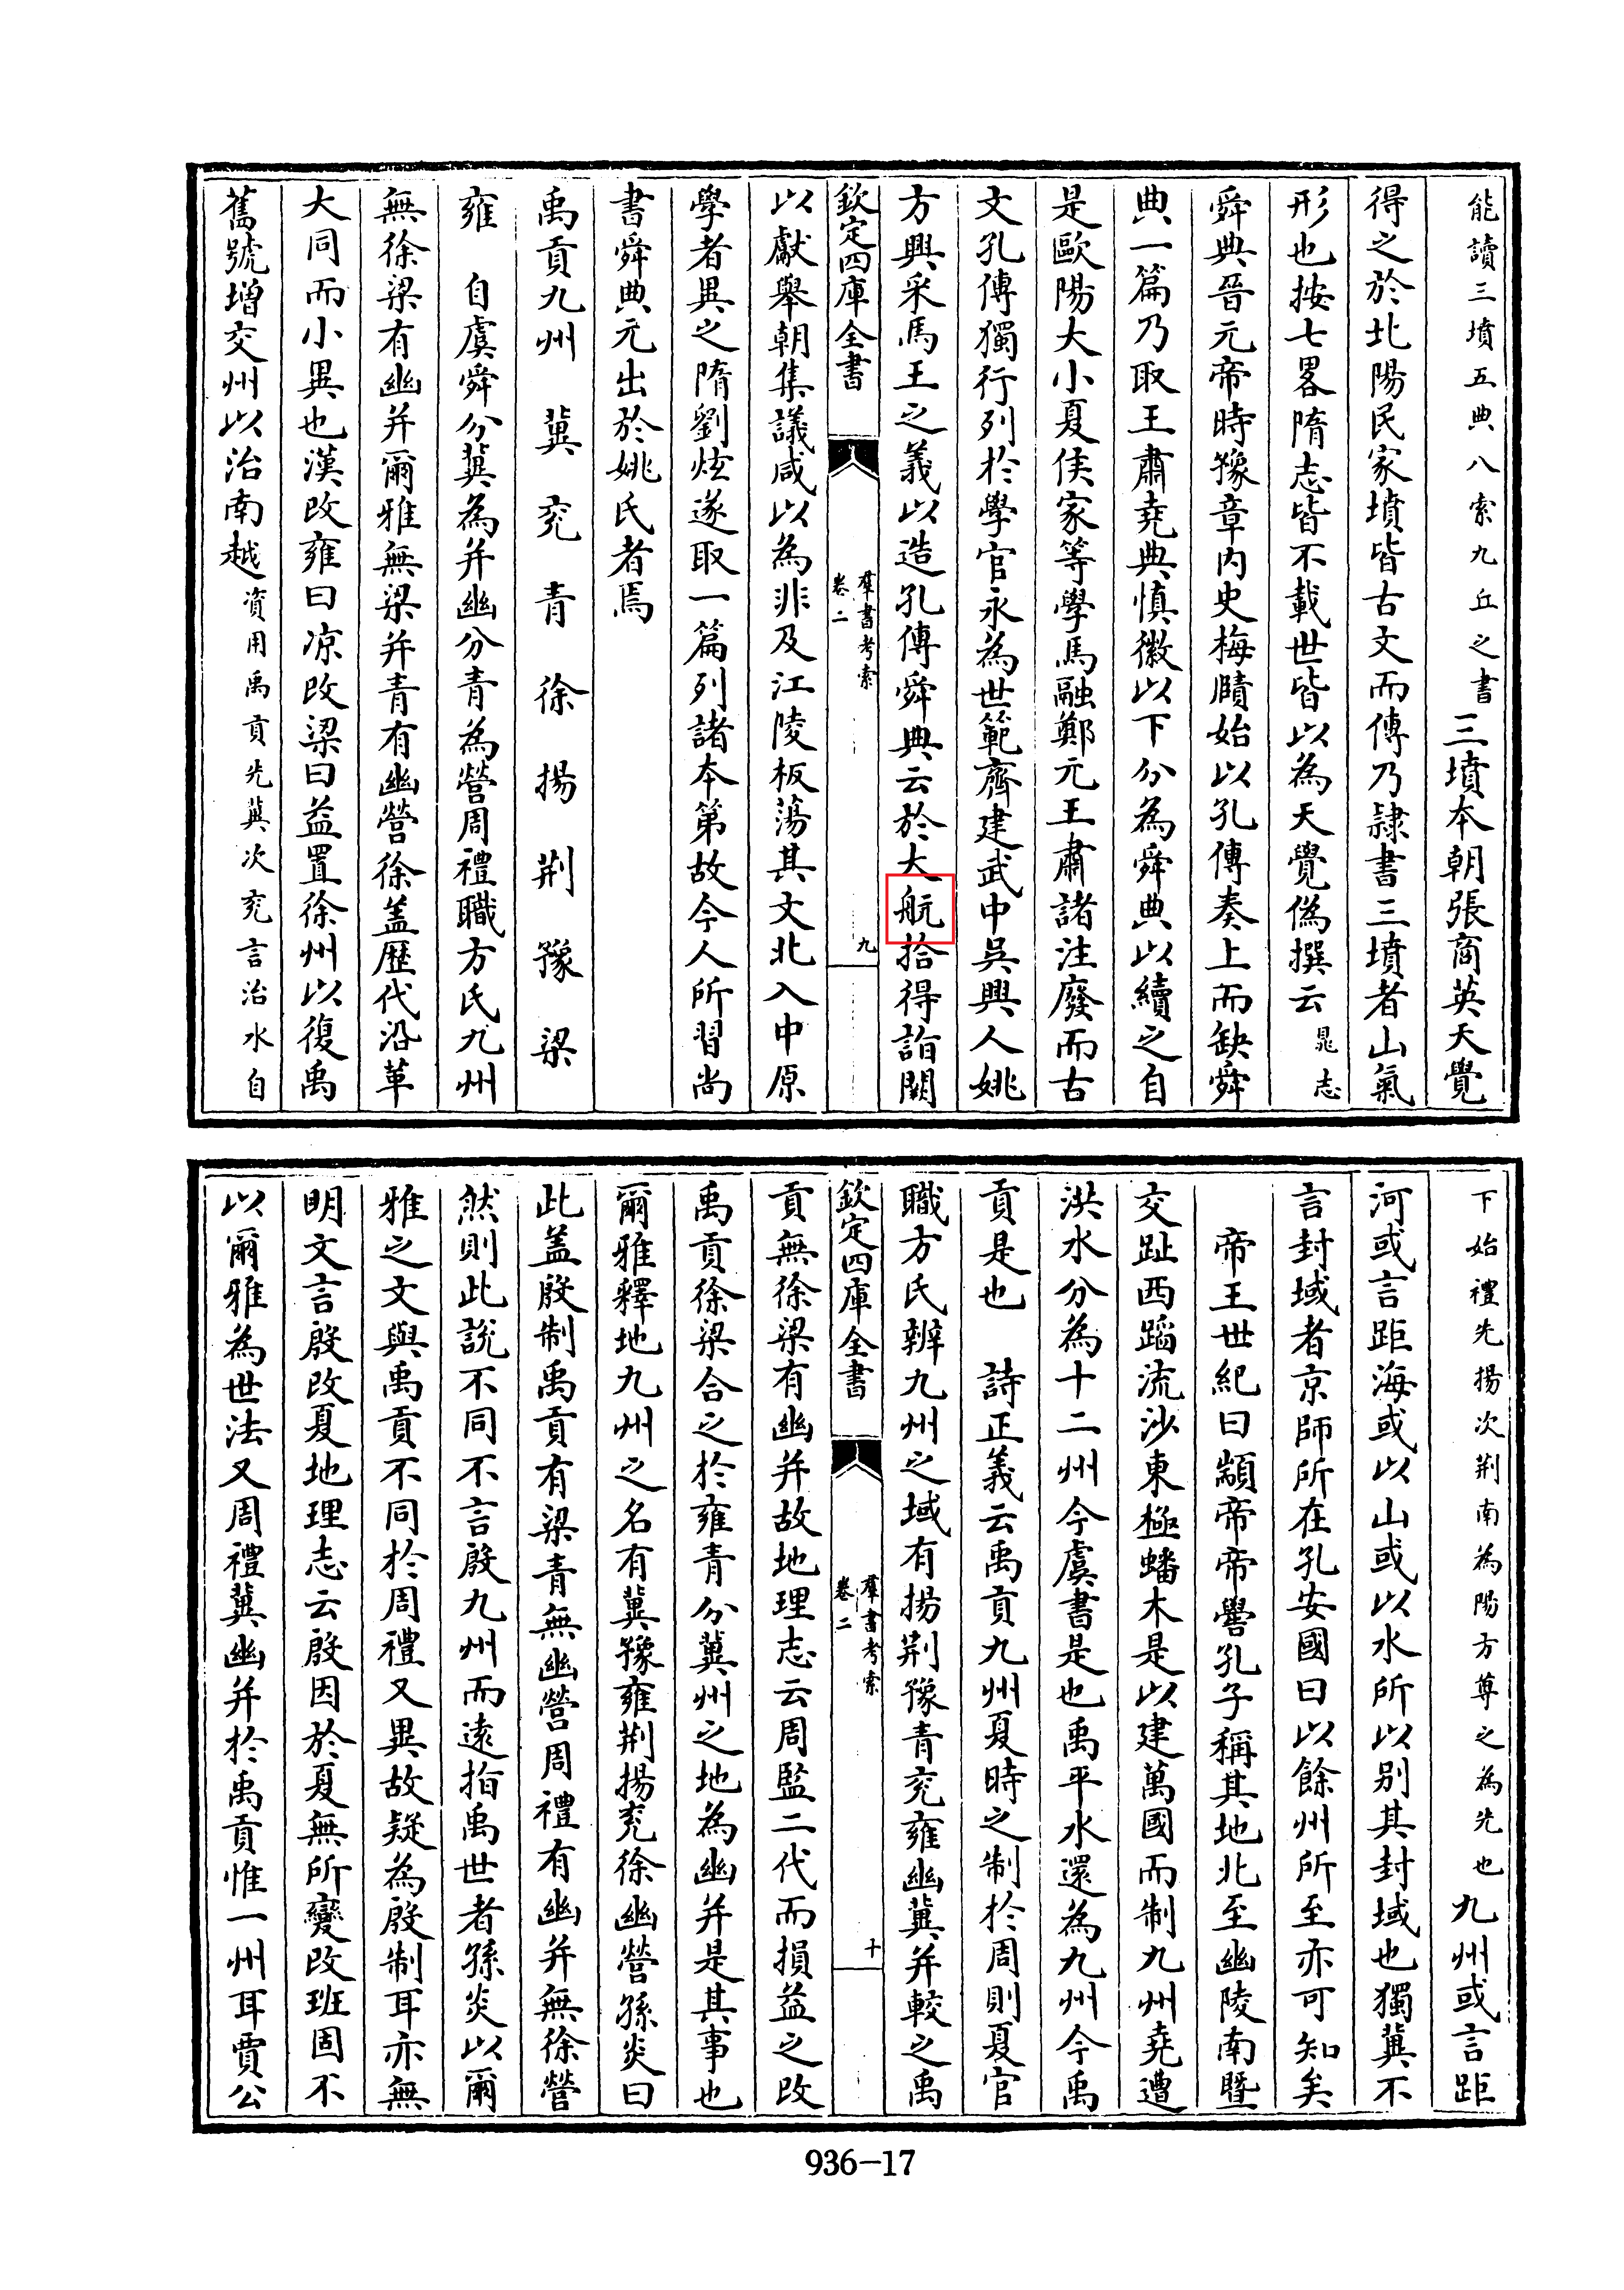 能讀三墳五典八索九丘之書三墳本朝張商英天覺
得之於北陽民家墳皆古文而傳乃隸書三墳者山氣
形也按七畧隋志皆不載世皆以為天覺偽撰云晁志
舜典晉元帝時豫章內史梅賾始以孔傳奏上而缺舜
典一篇乃取王肅堯典慎徽以下分為舜典以續之自
是歐陽大小夏侯家等學馬融鄭元王肅諸注廢而古
文孔傳獨行列於學官永為世範齊建武中吳興人姚
方興采馬王之義以造孔傳舜典云於大航拾得詣闕
欽定四庫全書
羣書考索
卷二
九
以獻舉朝集議咸以為非及江陵板蕩其文北入中原
學者異之隋劉炫遂取一篇列諸本第故今人所習尚
書舜典元出於姚氏者焉
禹貢九州 冀 兖 青 徐 揚 荆 豫 梁
雍 自虞舜分冀為并幽分青為營周禮職方氏九州
無徐梁有幽并爾雅無梁并青有幽營徐盖歷代沿革
大同而小異也漢改雍曰凉改梁曰益置徐州以復禹
舊號增交州以治南越資用禹貢先冀次兖言治水自
下始禮先揚次荆南為陽方尊之為先也九州或言距
河或言距海或以山或以水所以别其封域也獨冀不
言封域者京師所在孔安國曰以餘州所至亦可知矣
帝王世紀曰顓帝帝嚳孔子稱其地北至幽陵南暨
交趾西蹈流沙東極蟠木是以建萬國而制九州堯遭
洪水分為十二州今虞書是也禹平水還為九州今禹
貢是也 詩正義云禹貢九州夏時之制於周則夏官
職方氏辨九州之域有揚荆豫青兖雍幽冀并較之禹
欽定四庫全書
羣書考索
卷二
十
貢無徐梁有幽并故地理志云周監二代而損益之改
禹貢徐梁合之於雍青分冀州之地為幽并是其事也
爾雅釋地九州之名有冀豫雍荆揚兖徐幽營孫炎曰
此盖殷制禹貢有梁青無幽營周禮有幽并無徐營
然則此說不同不言殷九州而遠指禹世者孫炎以爾
雅之文與禹貢不同於周禮又異故疑為殷制耳亦無
明文言殷改夏地理志云殷因於夏無所變改班固不
以爾雅為世法又周禮冀幽并於禹貢惟一州耳賈公
936-17